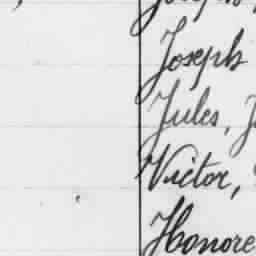 Joseph
Jules, J
Victor,
Honore